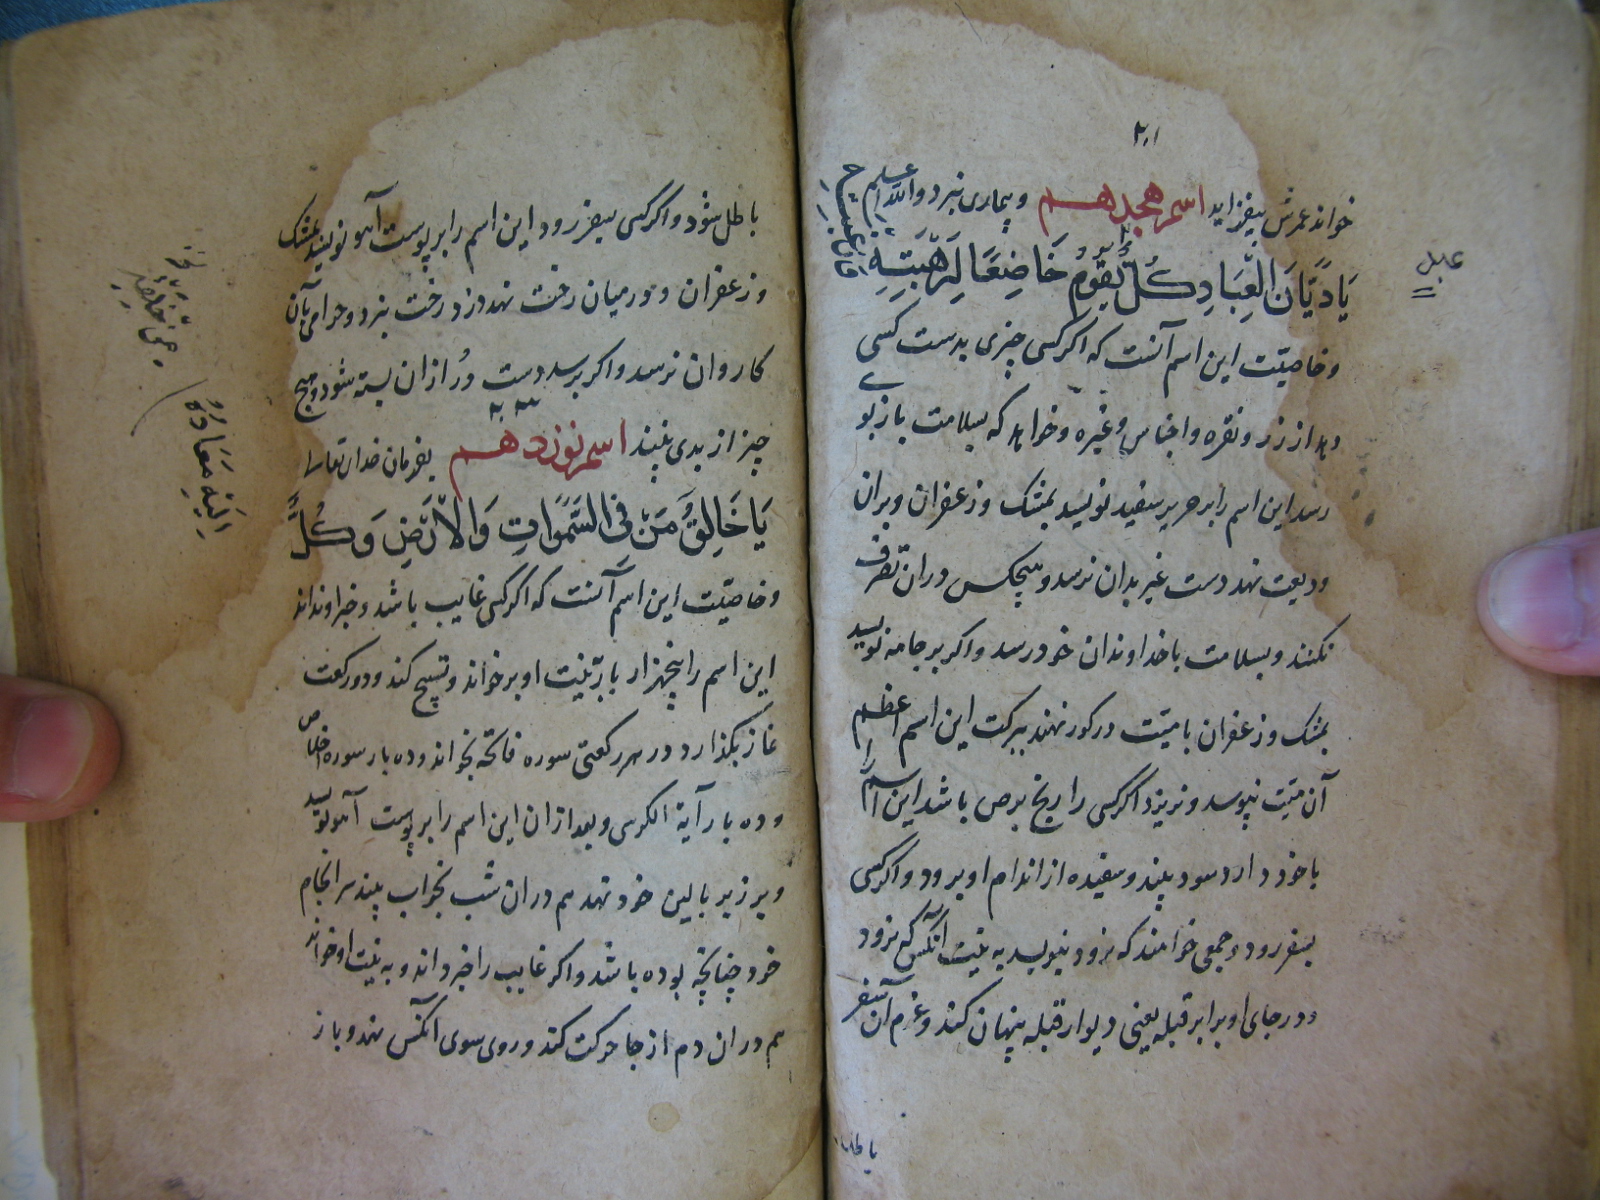 خواند عمرش بیفزاید اسم هجدهم و بیماری نبرد والله اعلم
یَا دَیَّانَ الْعِبَادِ کُلٌّ یَقُوْمُ خَاضِعًا لِرَهْبَتِهِ
و خاصیّت این اسم آنست که اگر کسی چیزی بدست کسی
دهد از زر و نقره و اجناس و غیره و خواهد که بسلامت باز بوی
رسد این اسم را بر حریر سفید نویسد بمشک و زعفران و بران
ودیعت نهد دست غیر بدان نرسد و هیچکس دران تصرف
نکند و بسلامت با خداوندان خود رسد و اگر بر جامه نویسد
بمشک و زعفران با میّت در کور نهند ببرکت این اسم اعظم
آن میّت نپوسد و نریزد اگر کسی را رنج برص باشد این اسم را
با خود دارد سود بیند و سفیده از اندام او برود و اگر کسی
بسفر رود و جمعی خواهند که نرود بنویسد به نیّت آنکس که نرود
و در جای او برابر قبله یعنی دیوار قبله پنهان کند و عزم آن سفر
باطل
عبد
باطل شود و اگر کسی بسفر رود این اسم را بر پوست آهو نویسد بمشک
و زعفران و در میان رخت نهد دزد رخت نبرد و حرامی بآن
کاروان نرسد و اگر برسد دست دزد ازان بسته شود و هیچ
چیز از بدی نبیند اسم نوزدهم بفرمان خدای تعالی
یَا خَالِقَ مَنْ فِی السَّمٰوَاتِ وَالْاَرْضِ وَ کُلٌّ
اِلَیْهِ مَعَادُهُ
و خاصیّت این اسم آنست که اگر کسی غایب باشد و خبر او نداند
این اسم را پنجهزار بار بنیت او بر خواند و تسبیح کند و دو رکعت
نماز بگذارد در هر رکعتی سوره فاتحه بخواند و ده بار سوره اخلاص
و ده بار آیة الکرسی و بعد ازان این اسم را بر پوست آهو نویسد
و بر زیر بالین خود نهد هم دران شب بخواب بیند سرانجام
خود چنانچه بوده باشد و اگر غایب را خبر داند و به نیّت او خواند
هم دران دم از جا حرکت کند و روی سوی آنکس نهد و باز